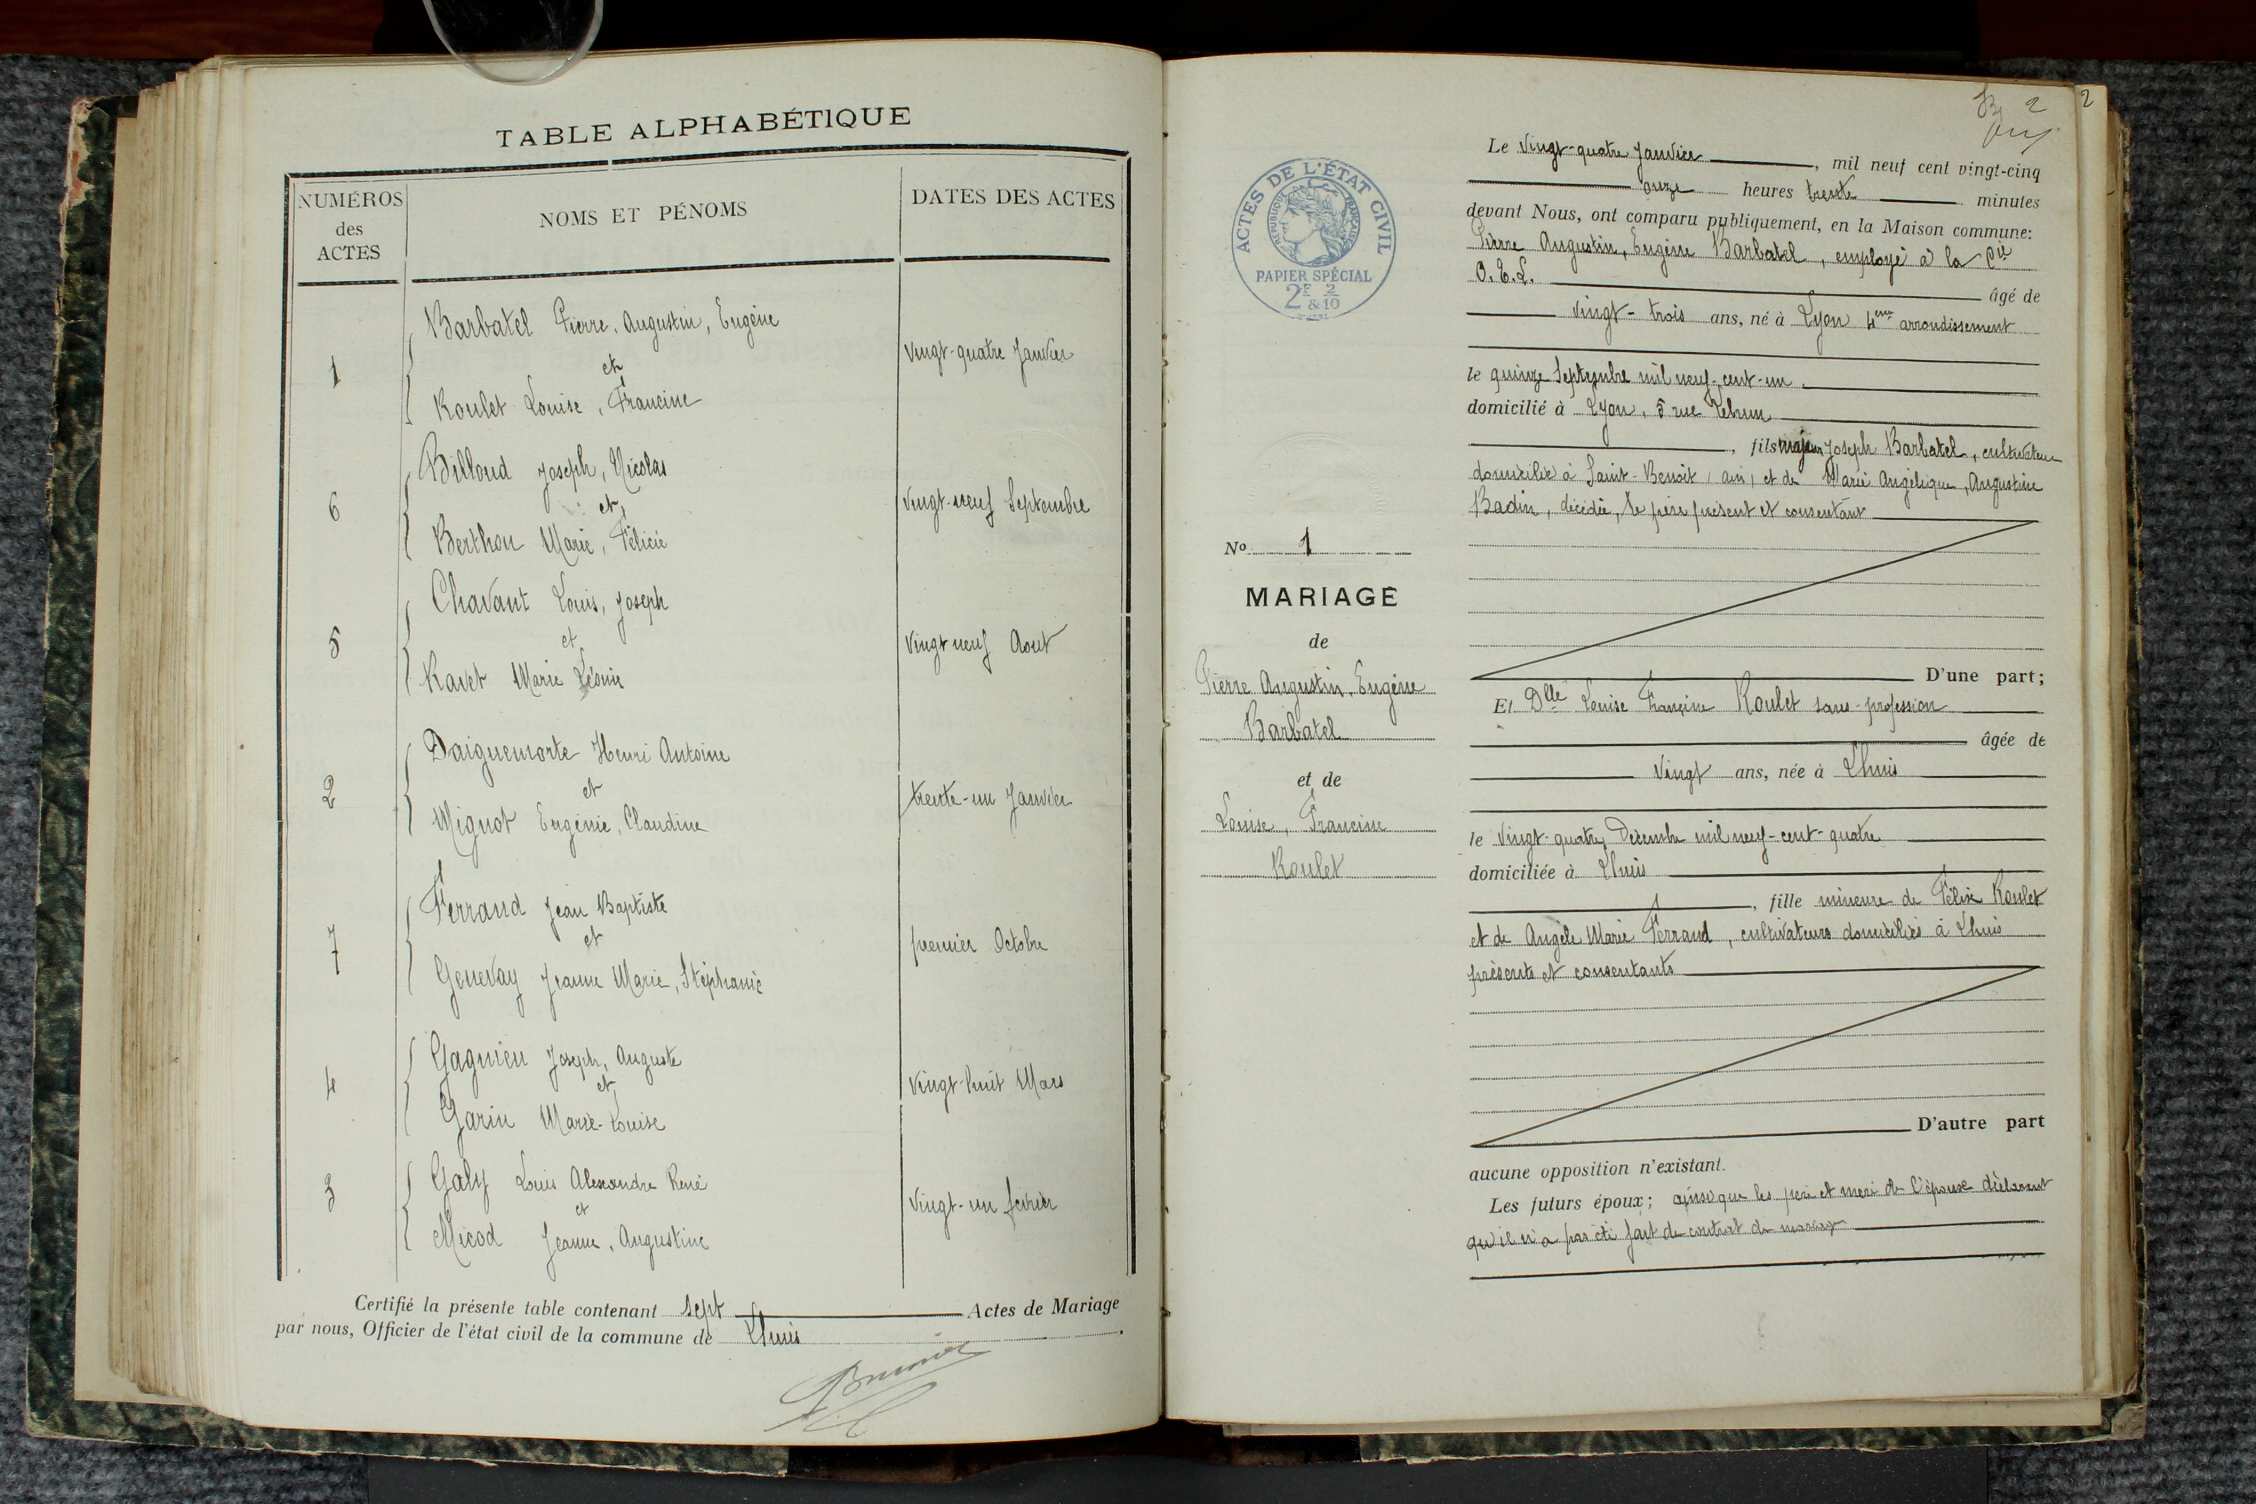 TABLE ALPHABÉTIQUE
NUMÉROS
des
ACTES
NOMS ET PÉNOMS
DATES DES ACTES
1
Barbatel Pierre, Augustin, Eugène
et
Roulet Louise, Francine
Vingt-quatre Janvier
6
Billoud Joseph, Nicolas
et
Berthon Marie, Félicie
Vingt-neuf Septembre
5
Chavant Louis, Joseph
et
Ravet Marie Léonie
Vingt-neuf Aout
2
Daiguemorte Henri Antoine
et
Mignot Eugénie, Claudine
trente-un Janvier
7
Ferrand Jean Baptiste
et
Genevay Jeanne Marie, Stéphanie
premier Octobre
4
Gagnieu Joseph, Auguste
et
Garin Marie-Louise
Vingt-huit Mars
3
Galy Louis Alexandre René
et
Micod Jeanne, Augustine
Vingt-un février
Certifié la présente table contenant sept Actes de Mariage
par nous, Officier de l'état civil de la commune de Lhuis
2
2
ACTES DE L'ÉTAT CIVIL
RÉPUBLIQUE FRANÇAISE
PAPIER SPÉCIAL
2F 2
&10
No 1
MARIAGE
de
Pierre Augustin, Eugène
Barbatel
et de
Louise, Francine
Roulet
Le Vingt-quatre Janvier, mil neuf cent vingt-cinq
onze heures trente minutes
devant Nous, ont comparu publiquement, en la Maison commune:
Pierre Augustin, Eugène Barbatel, employé à la Cie
O.T.L. âgé de
Vingt-trois ans, né à Lyon 4eme arrondissement
le quinze Septembre mil neuf-cent-un
domicilié à Lyon, 5 rue Lebrun
, fils majeur Joseph Barbatel, cultivateur
domicilié à Saint-Benoit, ain, et de Marie Angélique, Augustine
Badin, décédée, le père présent et consentant
D'une part;
Et Dlle Louise Francine Roulet sans-profession
âgée de
Vingt ans, née à Lhuis
le Vingt-quatre Décembre mil neuf-cent-quatre
domiciliée à Lhuis
, fille mineure de Félix Roulet
et de Angèle Marie Ferrand, cultivateurs domiciliés à Lhuis
présents et consentants
D'autre part
aucune opposition n'existant.
Les futurs époux; ainsi que les père et mère de l'épouse déclarent
qu'il n'a pas été fait de contrat de mariage